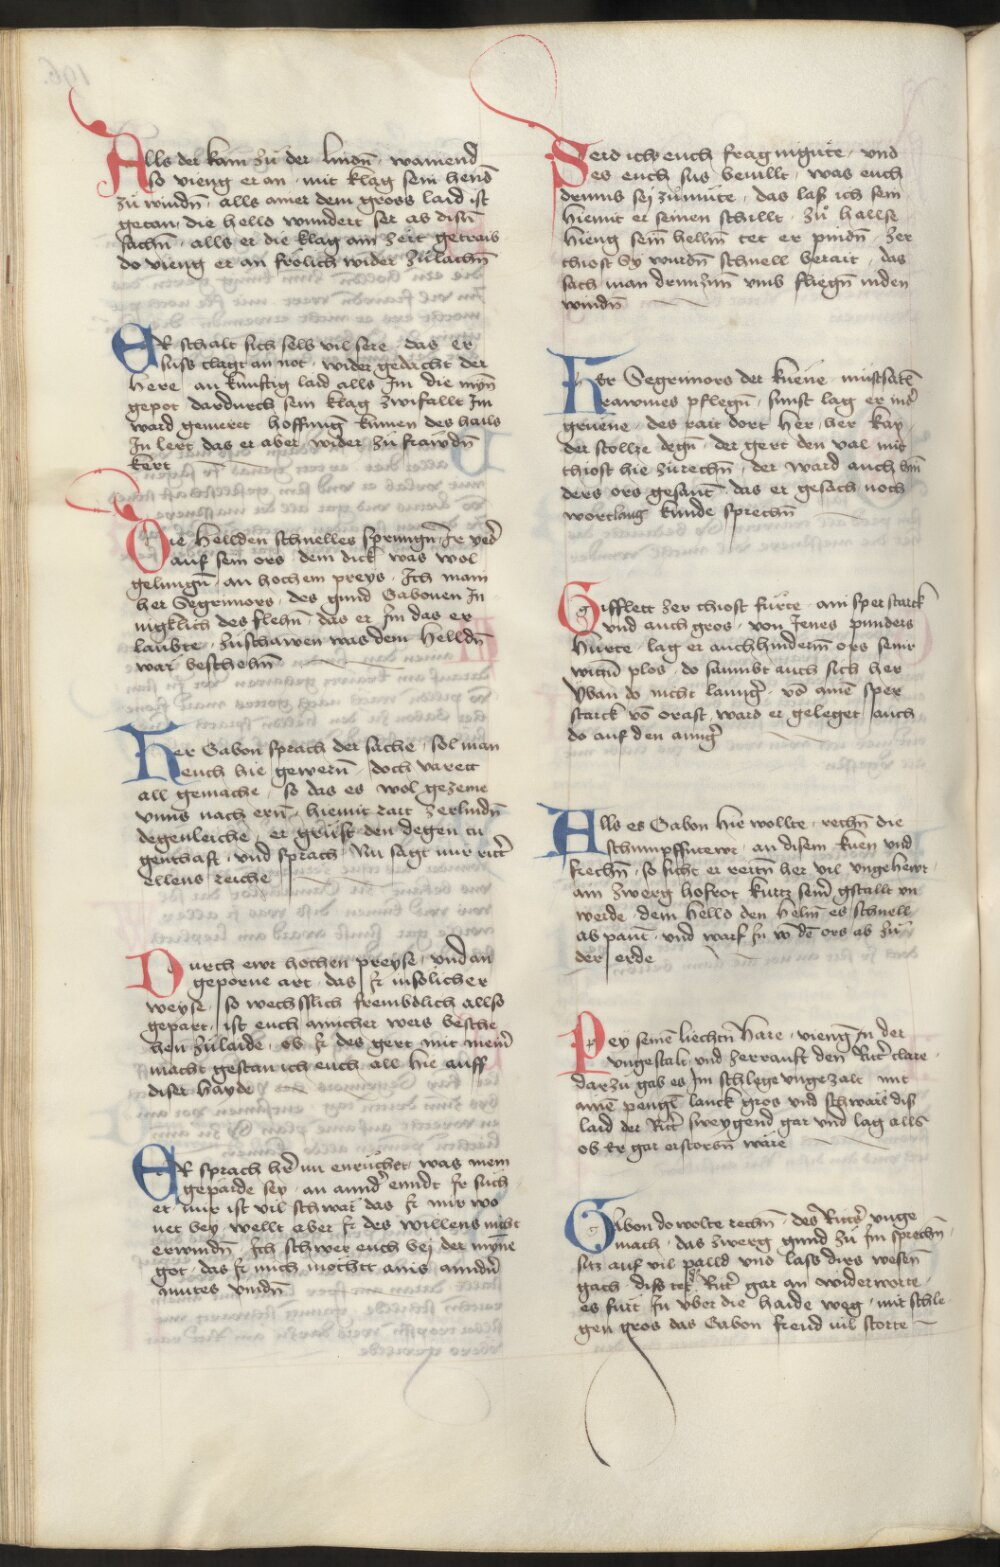 Alls der kam zu der lindn wainend
so vieng er an mit klag sein hend
zu windn alls ainer dem gross laid ist
getan die helld wundert ser ab disn
sachn alls er die klag ain zeit getraib
do vieng er an frolich wider zulachn
Er schalt sich selb vil sere das er
suss clagt an not wider gedacht der
here an kunftig laid alls Im die myn
gepot dardurch sein klag zwifallt Im
ward gemeret hoffnung kumen des hails
In lert das er aber wider zu frawdn
kert
Die hellden schnelles sprungn Ir yed
auf sein ors dem dick was wol
gelungn an hochem preys Ich main
her Segrimors des gund Gabonen In
nigklich des flehn das er Im das er
laubte zuschawen was dem helldn
war beschehn
Her Gabon sprach der sache sol man
euch hie gewern doch varett
all gemache so das es wol gezeme
unns nach ern hiemit rait zerlindn
degenleiche er grust den degen tu
genthaft und sprach Nu sagt mir ritter
ellens reiche
Durch ewr hochen preyse und an
geporne art das Ir insolicher
weyse so wechsslich frembdlich allso
gepart ist euch annicher wers besche
hen zulaide ob Ir des gert mit meiner
macht gestan ich euch all hie auff
diser hayde
Er sprach her nu enruchet was mein
geparde sey an annder ennde Ir such
et mir ist vil schwar das Ir mir wo
net bey wellt aber Ir des willens nicht
erwindn Ich schwer euch bei der mynne
got das Ir mich mochtt ains anndern
mutes vindn
Seid ich euch frag inguete und
es euch sus bevillt was euch
denns sei zumute das lass ich sein
hiemit er seinen schillt zu hallse
hieng sein hellm tet er pindn zer
thiost sy wurdn schnell berait das
sach man drunzun umb fliegn inden
windn
Her Segrimors der kuene mustsatel
rawmes pflegn sunst lag er inder
gruene des rait dort her her kay
der stolltze degn der gert den val mit
thiost hie zurechn der ward auch hin
ders ors gesannt das er gesach noch
wortlaug kunde sprechn
Gifflett zer thiost fuerte ain sper starck
und auch gros von Jenes punders
hurte lag er auch hinderm ors seiner
witzn plos do saumbt auch sich her
Yban do nicht lannger von ainem sper
starck von orast ward er geleget auch
do auf den annger
Alls es Gabon hie wollte rechn die
schumpffntewr an disem kuen und
frechn so sicht er reitn her vil ungehewr
ain zwerg hofrot kurtz seiner gstallt un
werde dem helld den helm es schnell
ab pant und warf In von dem ors ab zu
der erde
Pey seinem liechtn hare vieng In der
ungestalt und zerrauft den Ritter clare
darzu gab es Im schlege ungezalt mit
ainem pengl lanck gros und schwar dis
laid der Ritter sweygend gar und lag alls
ob Er gar erstorbn ware
Gabon do wolte rechn des Ritters unge
mach das zwerg gund zu Im sprechn
sitz auf vil palld und lass dirs wesen
gach diss tet der Ritter gar an widerworte
es furt In uber die haide weg mit schle
gen gros das Gabon freud vil storte